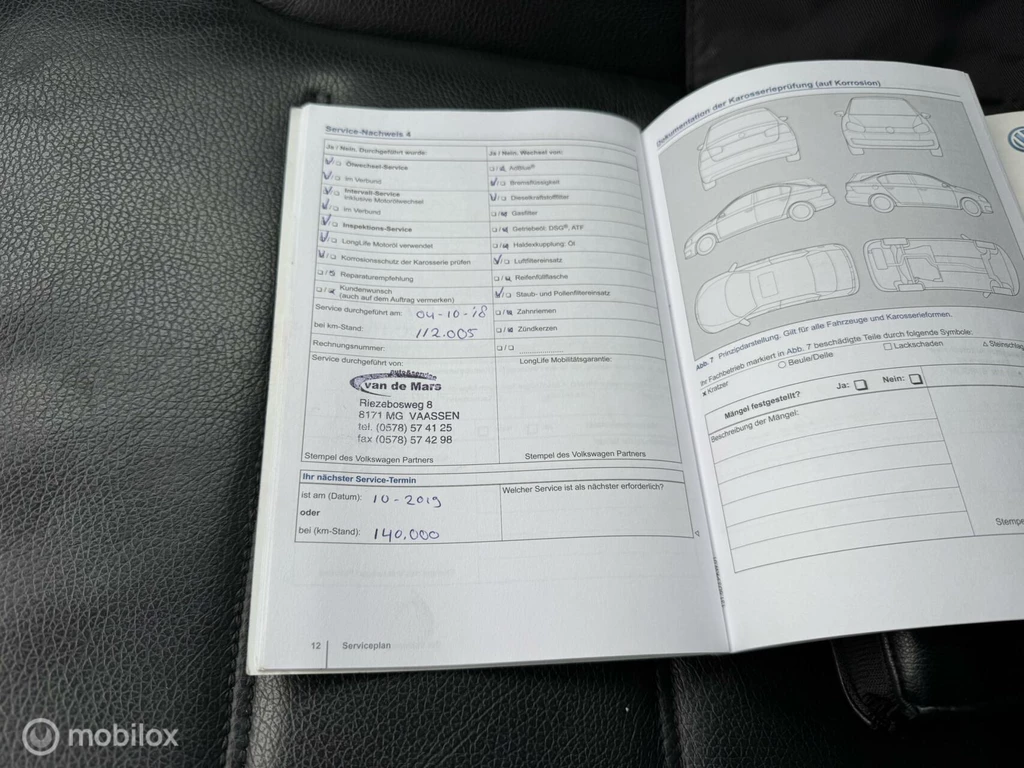 Service-Nachweis 4
Ja / Nein. Durchgeführt wurde:
Ölwechsel-Service
im Verbund
Intervall-Service
inklusive Motorölwechsel
im Verbund
Inspektions-Service
LongLife Motoröl verwendet
Korrosionsschutz der Karosserie prüfen
Reparaturempfehlung
Kundenwunsch
(auch auf dem Auftrag vermerken)
Service durchgeführt am: 04-10-18
bei km-Stand: 112.005
Rechnungsnummer:
Service durchgeführt von:
van de Mars
Riezebosweg 8
8171 MG VAASSEN
tel. (0578) 57 41 25
fax (0578) 57 42 98
Stempel des Volkswagen Partners
Ja / Nein. Wechsel von:
AdBlue®
Bremsflüssigkeit
Dieselkraftstofffilter
Gasfilter
Getriebeöl: DSG®, ATF
Haldexkupplung: Öl
Luftfiltereinsatz
Reifenfüllflasche
Staub- und Pollenfiltereinsatz
Zahnriemen
Zündkerzen
LongLife Mobilitätsgarantie:
Stempel des Volkswagen Partners
Ihr nächster Service-Termin
ist am (Datum): 10-2019
oder
bei (km-Stand): 140.000
Welcher Service ist als nächster erforderlich?
12 Serviceplan
Dokumentation der Karosserieprüfung (auf Korrosion)
Abb. 7 Prinzipdarstellung. Gilt für alle Fahrzeuge und Karosserieformen.
Ihr Fachbetrieb markiert in Abb. 7 beschädigte Teile durch folgende Symbole:
x Kratzer ○ Beule/Delle □ Lackschaden △ Steinschlag
Mängel festgestellt? Ja: Nein:
Beschreibung der Mängel:
mobilox